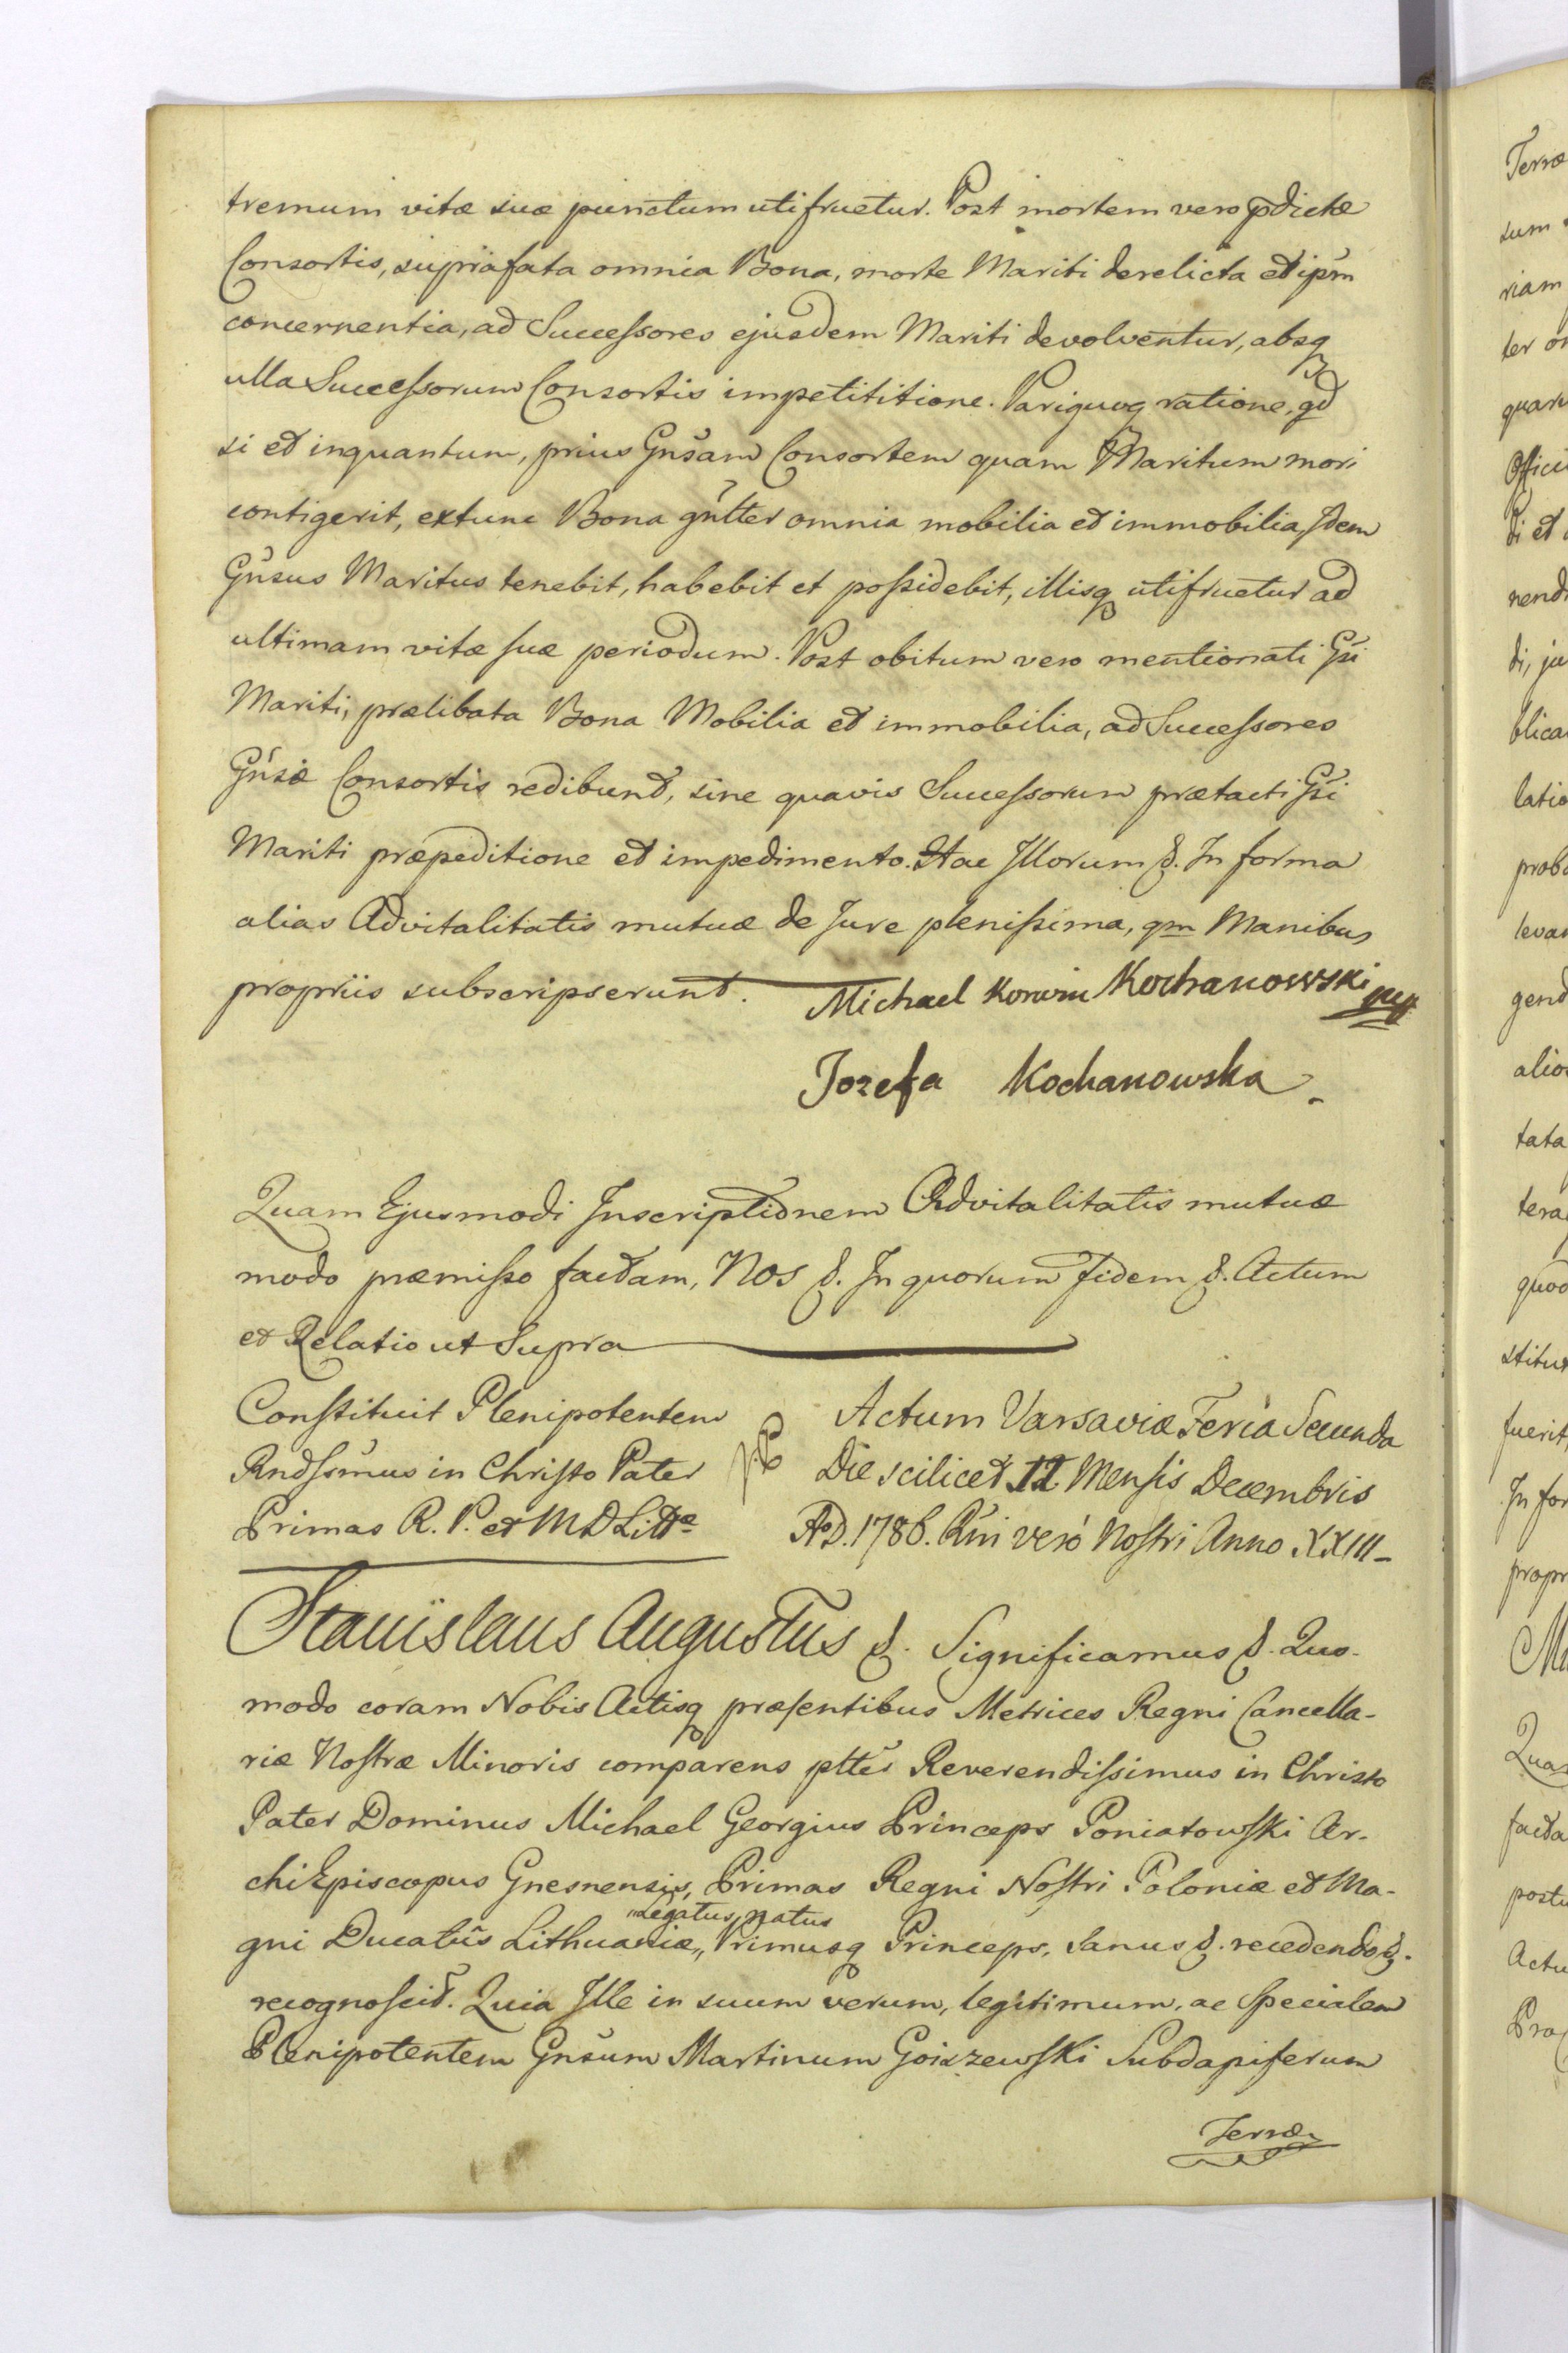 tremum vitæ suæ punctum utifruetur. Post mortem vero pdictæ
Consortis, suprafata omnia Bona, morte Mariti derelicta et ipm
concernentia, ad Successores ejusdem Mariti devolventur, absq
ulla Successorum Consortis impetititione. Pariquoq ratione, qd
si et inquantum, prius Gnsam Consortem quam Maritum mori
contigerit, extunc Bona gnltter omnia mobilia et immobilia, Idem
Gnsus Maritus tenebit, habebit et possidebit, illisq utifruetur ad
ultimam vitæ suæ periodum. Post obitum vero mentionati Gsi
Mariti, prælibata Bona Mobilia et immobilia, ad Successores
Gnsæ Consortis redibunt, sine quavis Successorum prætacti Gsi
Mariti præpeditione et impedimento. Hac Illorum &. In forma
alias Advitalitatis mutuæ de Jure plenissima, qm Manibus
propriis subscripserunt. Michael Korwin Kochanowski mp
Jozefa Kochanowska.
Quam Ejusmodi Inscriptionem Advitalitatis mutuæ
modo præmisso factam, Nos &. In quorum Fidem &. Actum
et Relatio ut Supra
Constituit Plenipotentem
Rndssmus in Christo Pater
Primas R. P. et M D Littæ
Actum Varsaviæ Feria Secunda
Die scilicet 12 Mensis Decembris
AD. 1786. Rni vero Nostri Anno XXIII
Stanislaus Augustus &. Significamus &. Quo-
modo coram Nobis Actisq præsentibus Metrices Regni Cancella-
riæ Nostræ Minoris comparens pltter Reverendissimus in Christo
Pater Dominus Michael Georgius Princeps Poniatowski Ar-
chiEpiscopus Gnesnensis, Primas Regni Nostri Poloniæ et Ma-
"Legatus natus
gni Ducatus Lithuaniæ,, Primusq Princeps, Sanus &. recedendo &.
recognoscit. Quia Ille in suum verum, legitimum, ac Specialem
Plenipotentem Gnsum Martinum Goiszewski Subdapiferum
Terræ